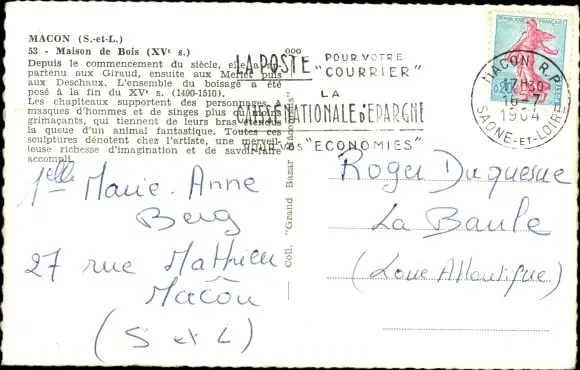 MACON (S.-et-L.)
53 - Maison de Bois (XVe s.)
Depuis le commencement du siècle, elle a ap-
partenu aux Giraud, ensuite aux Merlet puis
aux Deschaux. L'ensemble du boisage a été
posé à la fin du XVe s. (1490-1510).
Les chapiteaux supportent des personnages à
masques d'hommes et de singes plus ou moins
grimaçants, qui tiennent de leurs bras étendus
la queue d'un animal fantastique. Toutes ces
sculptures dénotent chez l'artiste, une merveil-
leuse richesse d'imagination et de savoir-faire
accompli.
Melle Marie-Anne
Berg
27 rue Mathieu
Macôn
(S et L)
Coll. "Grand Bazar Mâconnais"
LA POSTE POUR VOTRE
"COURRIER"
LA
CAISSE NATIONALE d'EPARGNE
POUR VOS "ECONOMIES"
REPUBLIQUE FRANÇAISE
POSTES
MACON R.P.
17H30
16-7
1964
SAONE-ET-LOIRE
Roger Duquesne
La Baule
(Loire Atlantique)